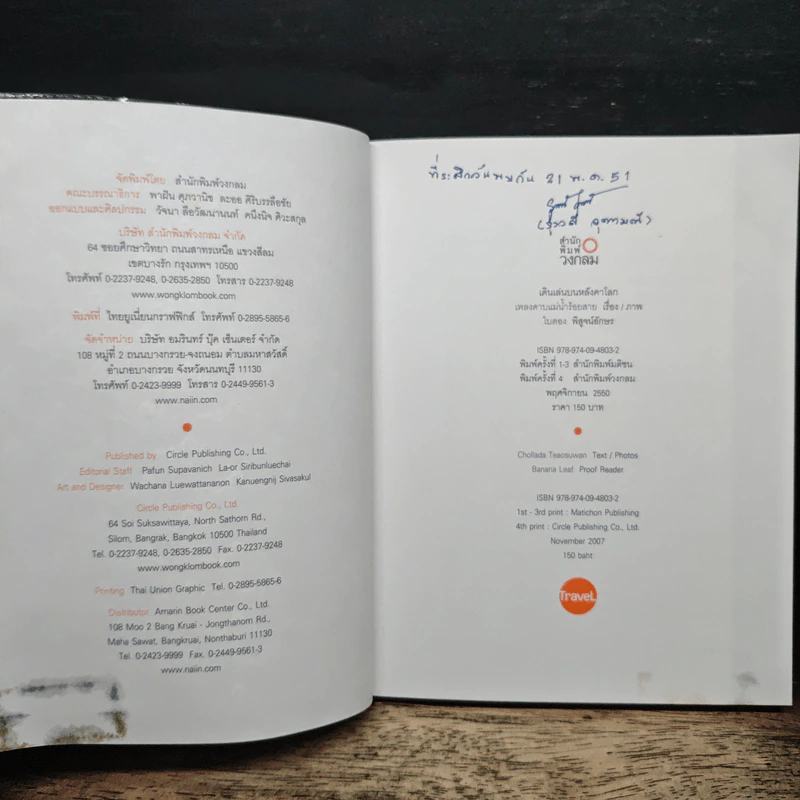 จัดพิมพ์โดย สำนักพิมพ์วงกลม
คณะบรรณาธิการ พาฝัน ศุภวานิช ละออ ศิริบรรลือชัย
ออกแบบและศิลปกรรม วัจนา ลือวัฒนานนท์ คนึงนิจ ศิวะสกุล
บริษัท สำนักพิมพ์วงกลม จำกัด
64 ซอยศึกษาวิทยา ถนนสาทรเหนือ แขวงสีลม
เขตบางรัก กรุงเทพฯ 10500
โทรศัพท์ 0-2237-9248, 0-2635-2850 โทรสาร 0-2237-9248
www.wongklombook.com
พิมพ์ที่ ไทยยูเนี่ยนกราฟฟิกส์ โทรศัพท์ 0-2895-5865-6
จัดจำหน่าย บริษัท อมรินทร์ บุ๊ค เซ็นเตอร์ จำกัด
108 หมู่ที่ 2 ถนนบางกรวย-จงถนอม ตำบลมหาสวัสดิ์
อำเภอบางกรวย จังหวัดนนทบุรี 11130
โทรศัพท์ 0-2423-9999 โทรสาร 0-2449-9561-3
www.naiin.com
Published by Circle Publishing Co., Ltd.
Editorial Staff Pafun Supavanich La-or Siribunluechai
Art and Designer Wachana Luewattananon Kanuengnij Sivasakul
Circle Publishing Co., Ltd.
64 Soi Suksawittaya, North Sathorn Rd.,
Silom, Bangrak, Bangkok 10500 Thailand
Tel. 0-2237-9248, 0-2635-2850 Fax. 0-2237-9248
www.wongklombook.com
Printing Thai Union Graphic Tel. 0-2895-5865-6
Distributor Amarin Book Center Co., Ltd.
108 Moo 2 Bang Kruai - Jongthanom Rd.,
Maha Sawat, Bangkruai, Nonthaburi 11130
Tel. 0-2423-9999 Fax. 0-2449-9561-3
www.naiin.com
ที่ระลึกวันพบกัน 21 พ.ค. 51
สำนัก
พิมพ์
วงกลม
เดินเล่นบนหลังคาโลก
เพลงคาบแม่น้ำร้อยสาย เรื่อง / ภาพ
ใบตอง พิสูจน์อักษร
ISBN 978-974-09-4803-2
พิมพ์ครั้งที่ 1-3 สำนักพิมพ์มติชน
พิมพ์ครั้งที่ 4 สำนักพิมพ์วงกลม
พฤศจิกายน 2550
ราคา 150 บาท
Chollada Teaosuwan Text / Photos
Banana Leaf Proof Reader
ISBN 978-974-09-4803-2
1st - 3rd print : Matichon Publishing
4th print : Circle Publishing Co., Ltd.
November 2007
150 baht
Travel